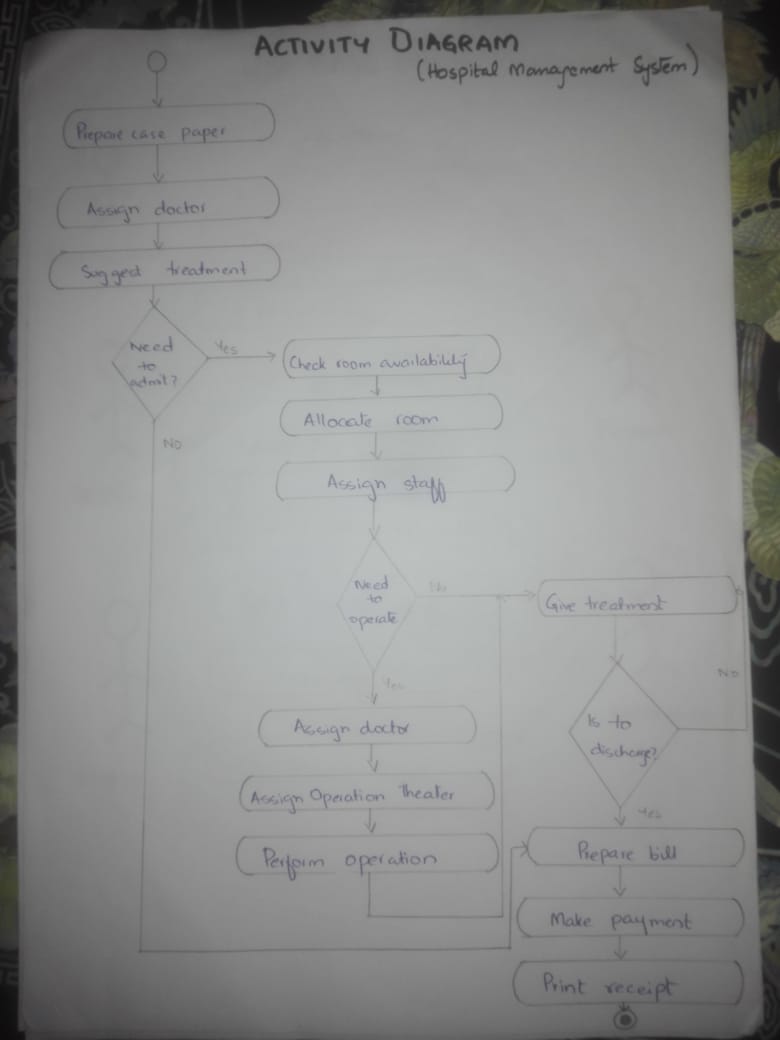 ACTIVITY DIAGRAM
(Hospital Management System)
Prepare case paper
Assign doctor
Sugged treatment
Need
to
admit?
Yes
No
Check room availability
Allocate room
Assign staff
Need
to
operate
No
Yes
Give treatment
Is to
discharge?
No
Yes
Assign doctor
Assign Operation Theater
Perform operation
Prepare bill
Make payment
Print receipt